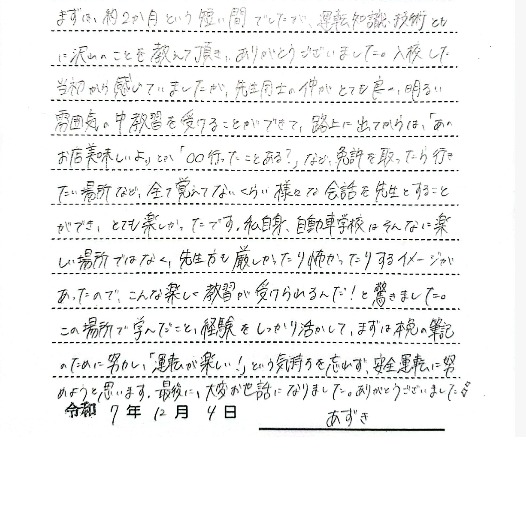 まずは、約2か月という短い間でしたが、運転知識、技術とも
に沢山のことを教えて頂き、ありがとうございました。入校した
当初から感じていましたが、先生同士の仲がとても良く、明るい
雰囲気の中教習を受けることができて、路上に出てからは、「あの
お店美味しいよ」とか「〇〇行ったことある?」など、免許を取ったら行き
たい場所など、全て覚えてないくらい様々な会話を先生とすること
ができ、とても楽しかったです。私自身、自動車学校はそんなに楽
しい場所ではなく、先生方も厳しかったり怖かったりするイメージが
あったので、こんな楽しく教習が受けられるんだ!と驚きました。
この場所で学んだこと、経験をしっかり活かして、まずは本免の筆記
のために努力し、「運転が楽しい!」という気持ちを忘れず、安全運転に努
めようと思います。最後に、大変お世話になりました。ありがとうございました
令和 7年 12月 4日 あずき